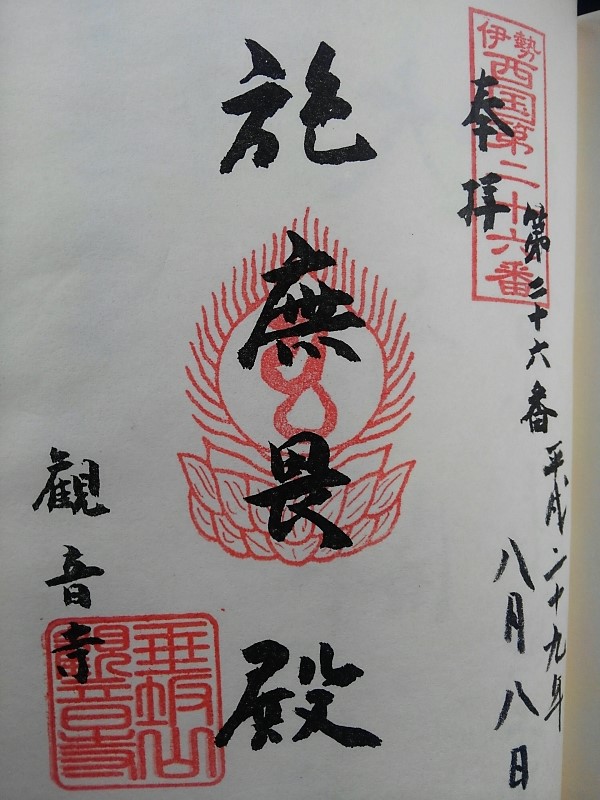 伊勢
西国第二十六番
奉拝
第二十六番
平成二十九年
八月八日
施無畏殿
観音寺
垂坂山
観音寺